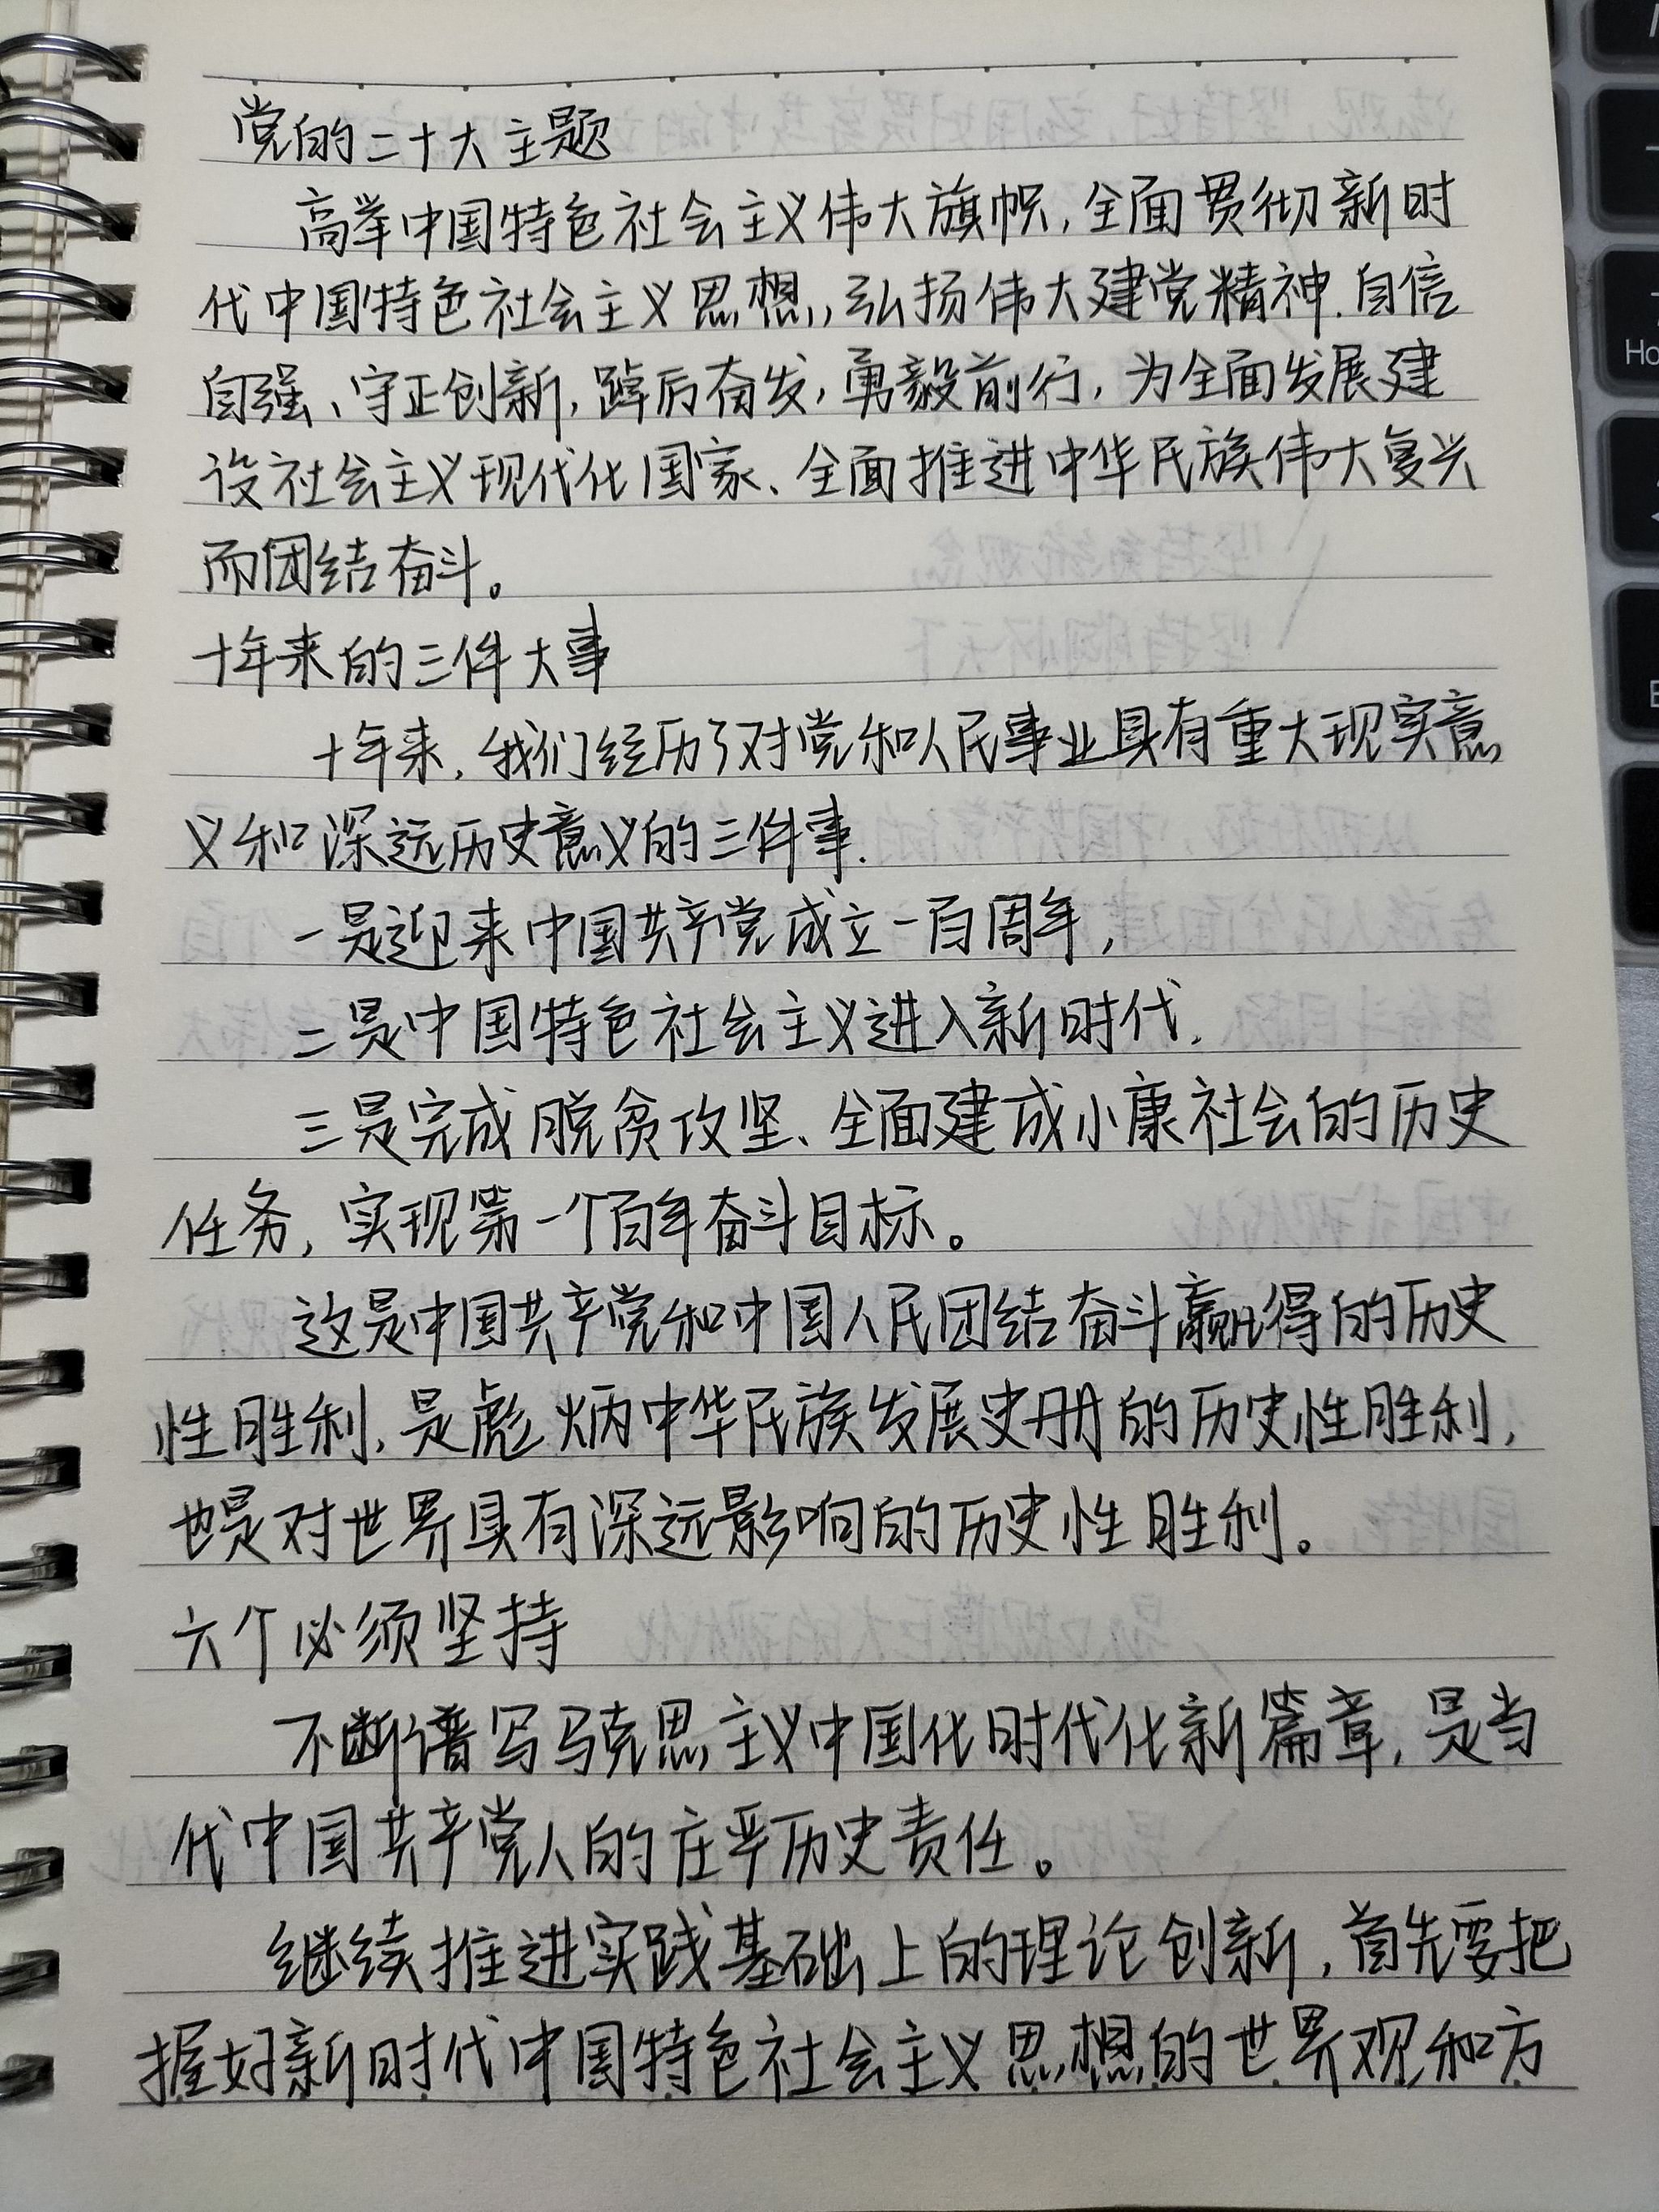 党的二十大主题
高举中国特色社会主义伟大旗帜,全面贯彻新时
代中国特色社会主义思想,弘扬伟大建党精神.自信
自强、守正创新,踔厉奋发,勇毅前行,为全面发展建
设社会主义现代化国家、全面推进中华民族伟大复兴
而团结奋斗。
十年来的三件大事
十年来,我们经历了对党和人民事业具有重大现实意
义和深远历史意义的三件事.
一是迎来中国共产党成立一百周年,
二是中国特色社会主义进入新时代,
三是完成脱贫攻坚、全面建成小康社会的历史
任务,实现第一个百年奋斗目标。
这是中国共产党和中国人民团结奋斗赢得的历史
性胜利,是彪炳中华民族发展史册的历史性胜利,
也是对世界具有深远影响的历史性胜利。
六个必须坚持
不断谱写马克思主义中国化时代化新篇章,是当
代中国共产党人的庄严历史责任。
继续推进实践基础上的理论创新,首先要把
握好新时代中国特色社会主义思想的世界观和方